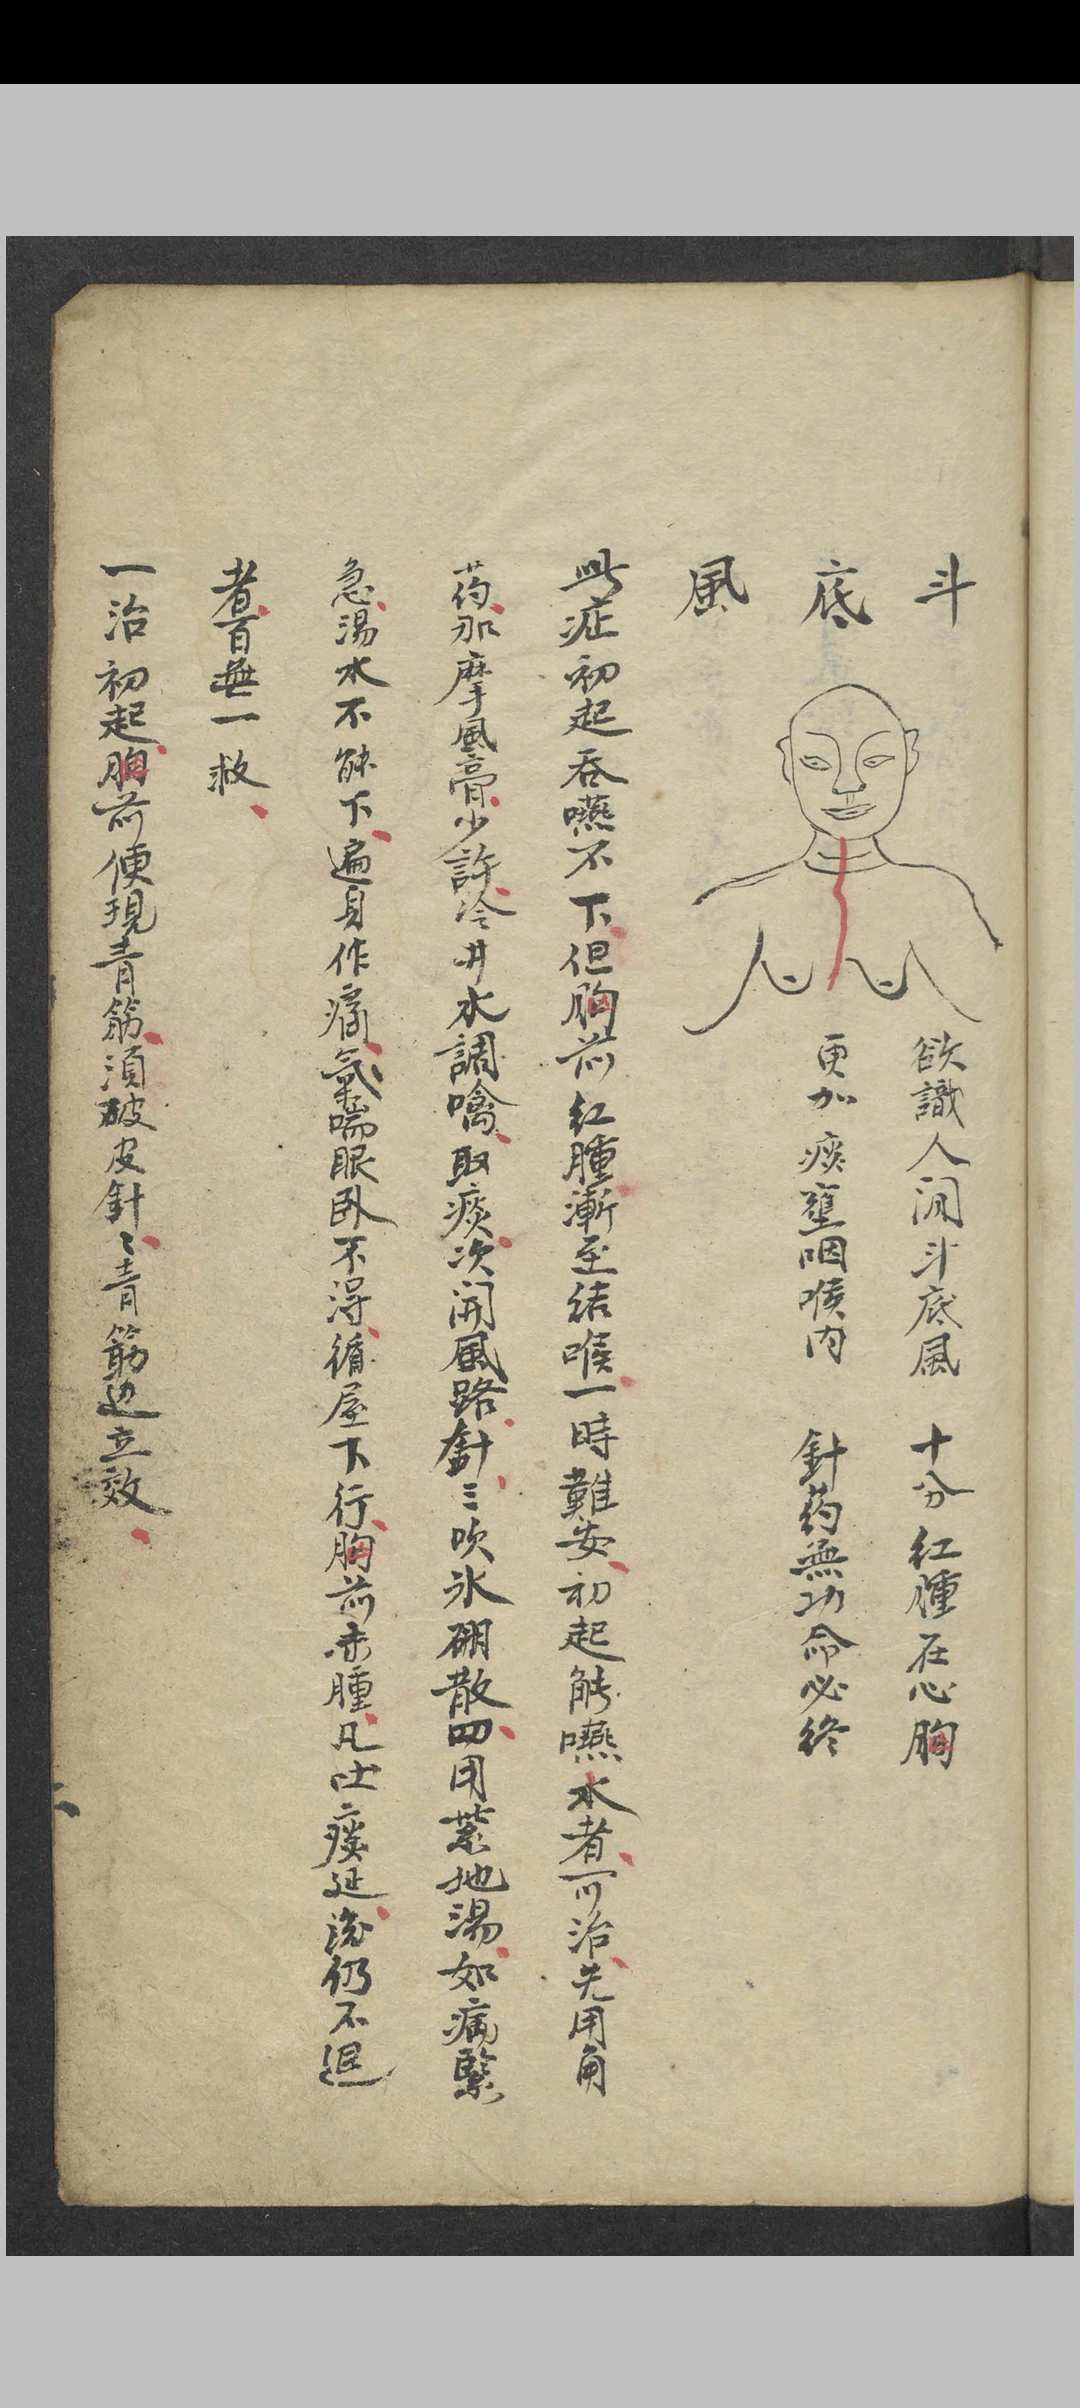 斗底風
欲識人間斗底風 十分紅腫在心胸
更加痰壅咽喉内 針药無功命必終
此症初起吞嚥不下但胸前紅腫漸至结喉一時難安初起能嚥水者可治先用角
药加摩風膏少許冷井水調噙取痰次開風路針三吹氷硼散四用紫地湯如病緊
急湯水不能下遍身作痛氣喘眼卧不得循屋下行胸前赤腫凡吐痰延後仍不退
者百無一救
一治初起胸前便現青筋須破皮針〻青筋边立效